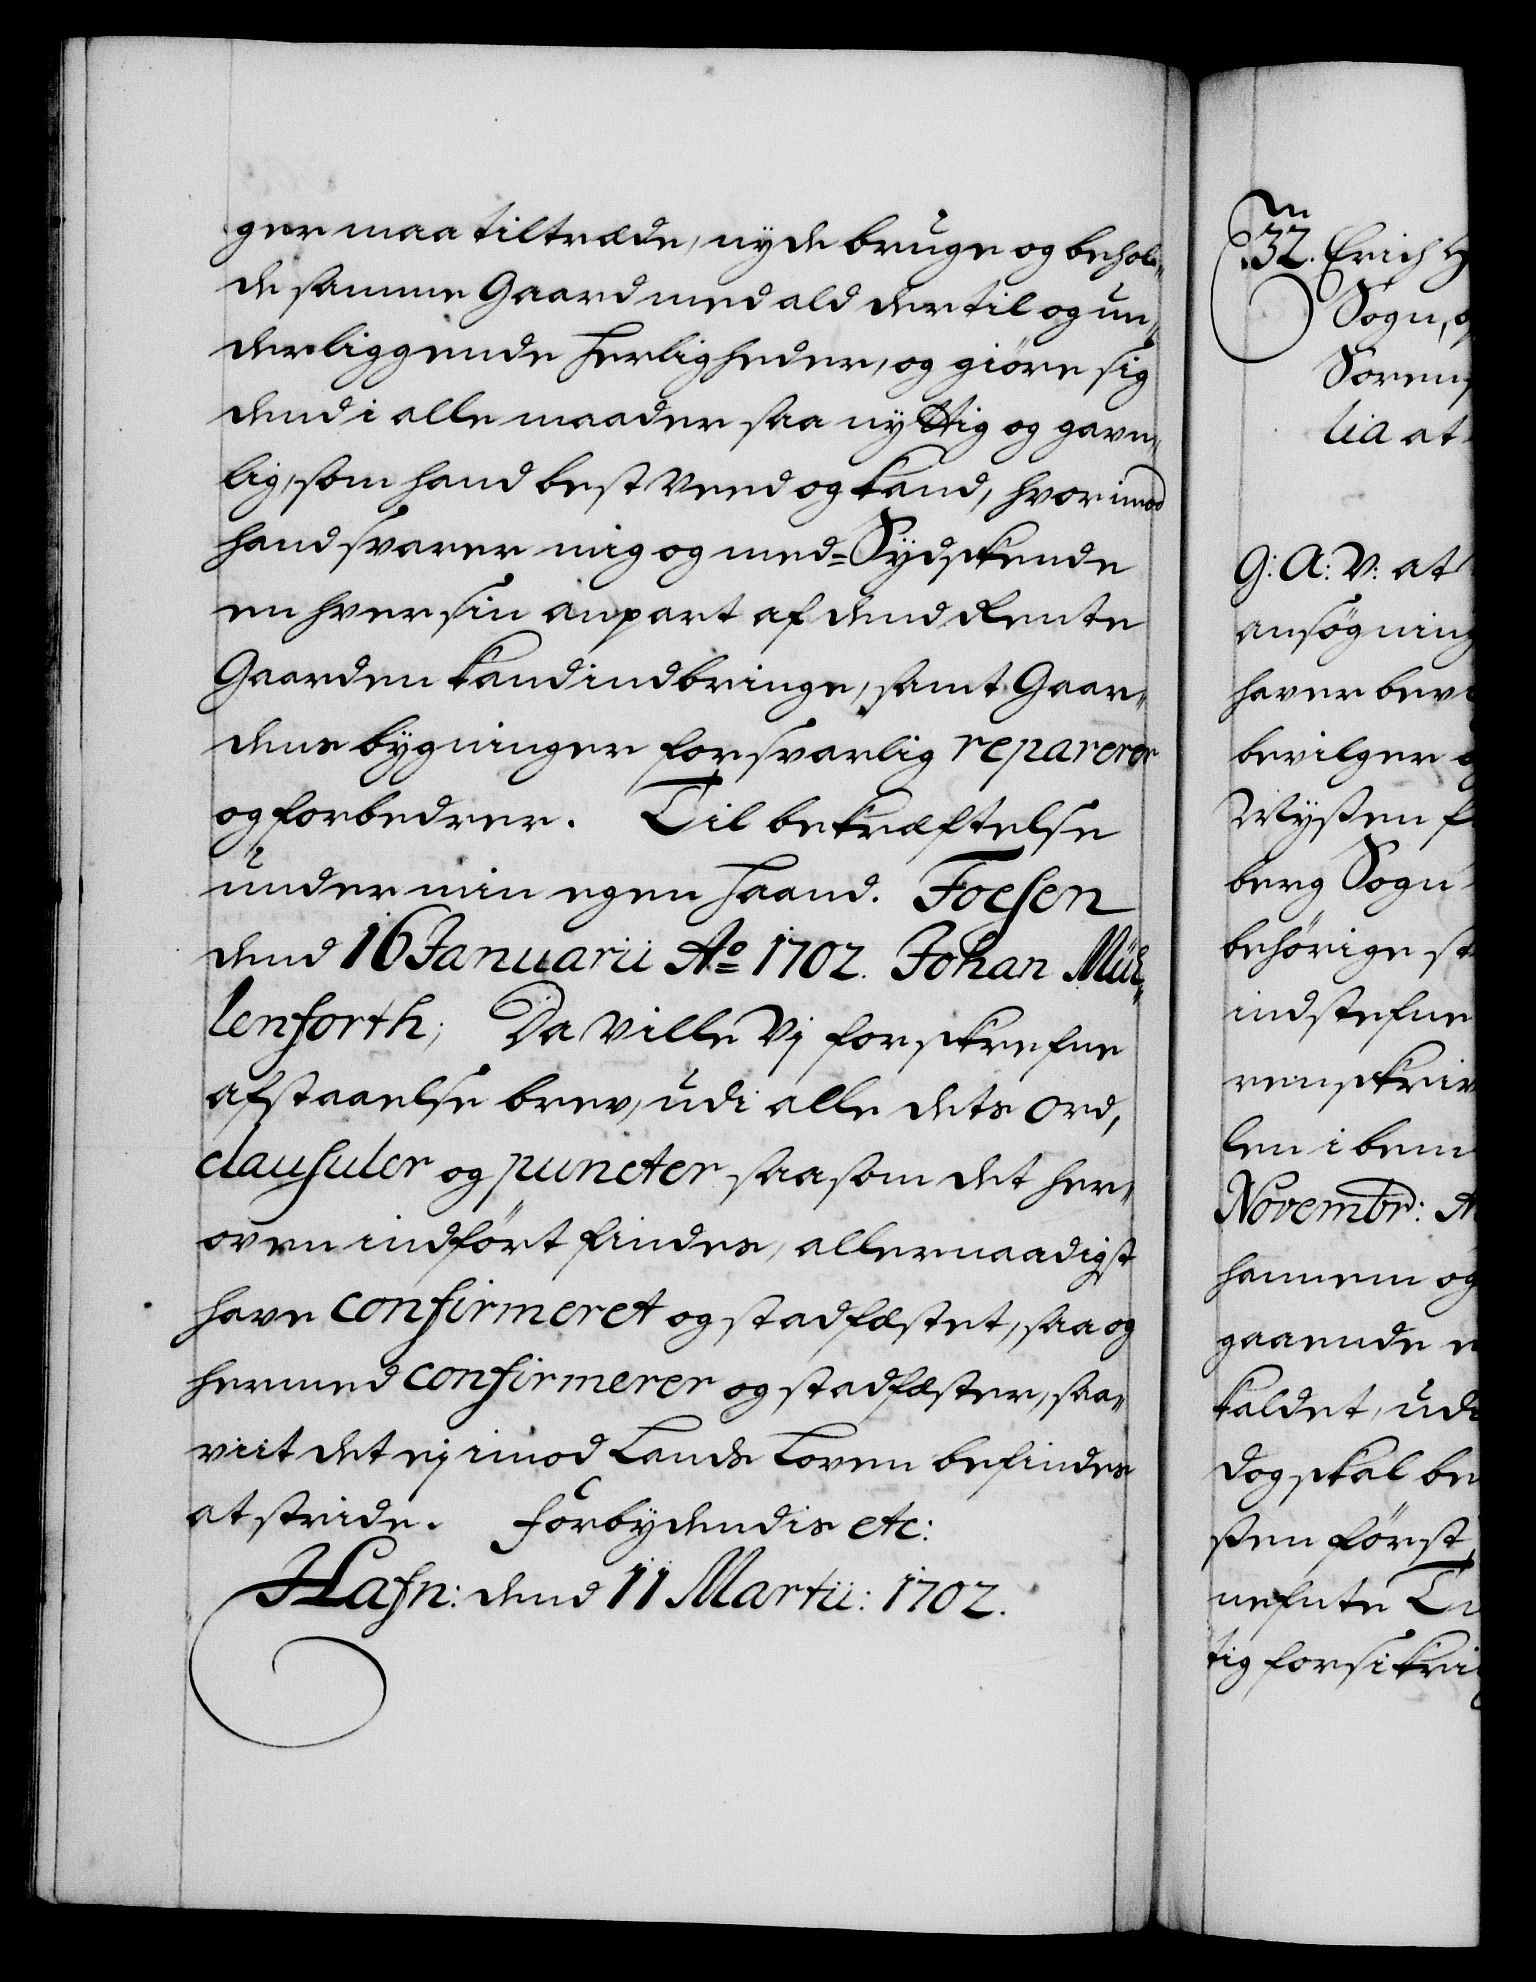 ger maa tiltræde, nyde bruge og behol„
de samme Gaard med ald dertil og un„
derliggende Herligheder, og giöre sig
dend i alle maader saa nyttig og gavn„
lig, som hand best veed og kand, hvorimod
hand svarer mig og med=Sydskende
en hver sin anpart af dend Rente
Gaarden kand indbringe, samt Gaar„
dens bygninger forsvarlig reparerer
og forbedrer. Til bekræftelse
under min egen Haand. Foesen
dend 16 Januarii Ao 1702. Johan Mül„
lenforth; Da ville Vj forskrefne
afstaaelse brev, udi alle dets ord,
clausuler og puncter saasom det her„
oven indfört findes, allernaadigst
have confirmeret og stadfæstet, saa og
hermed confirmerer og stadfæster, saa„
viit det ej imod Lands Loven befindes
at stride. Forbydendis etc:
Hafn: dend 11 Martii: 1702.
32. Erich H
Sogn, o
Sörens
lia at
G: A: V: at
ansögning
haver bev
bevilger o
Wysten f
berg Sogn
behörige st
indstefne
renskriv
len i bem
Novembr: A
hannem og
gaaende
kaldet, udi
dog skal be
sten först
nefnte Ti
tig forsikri